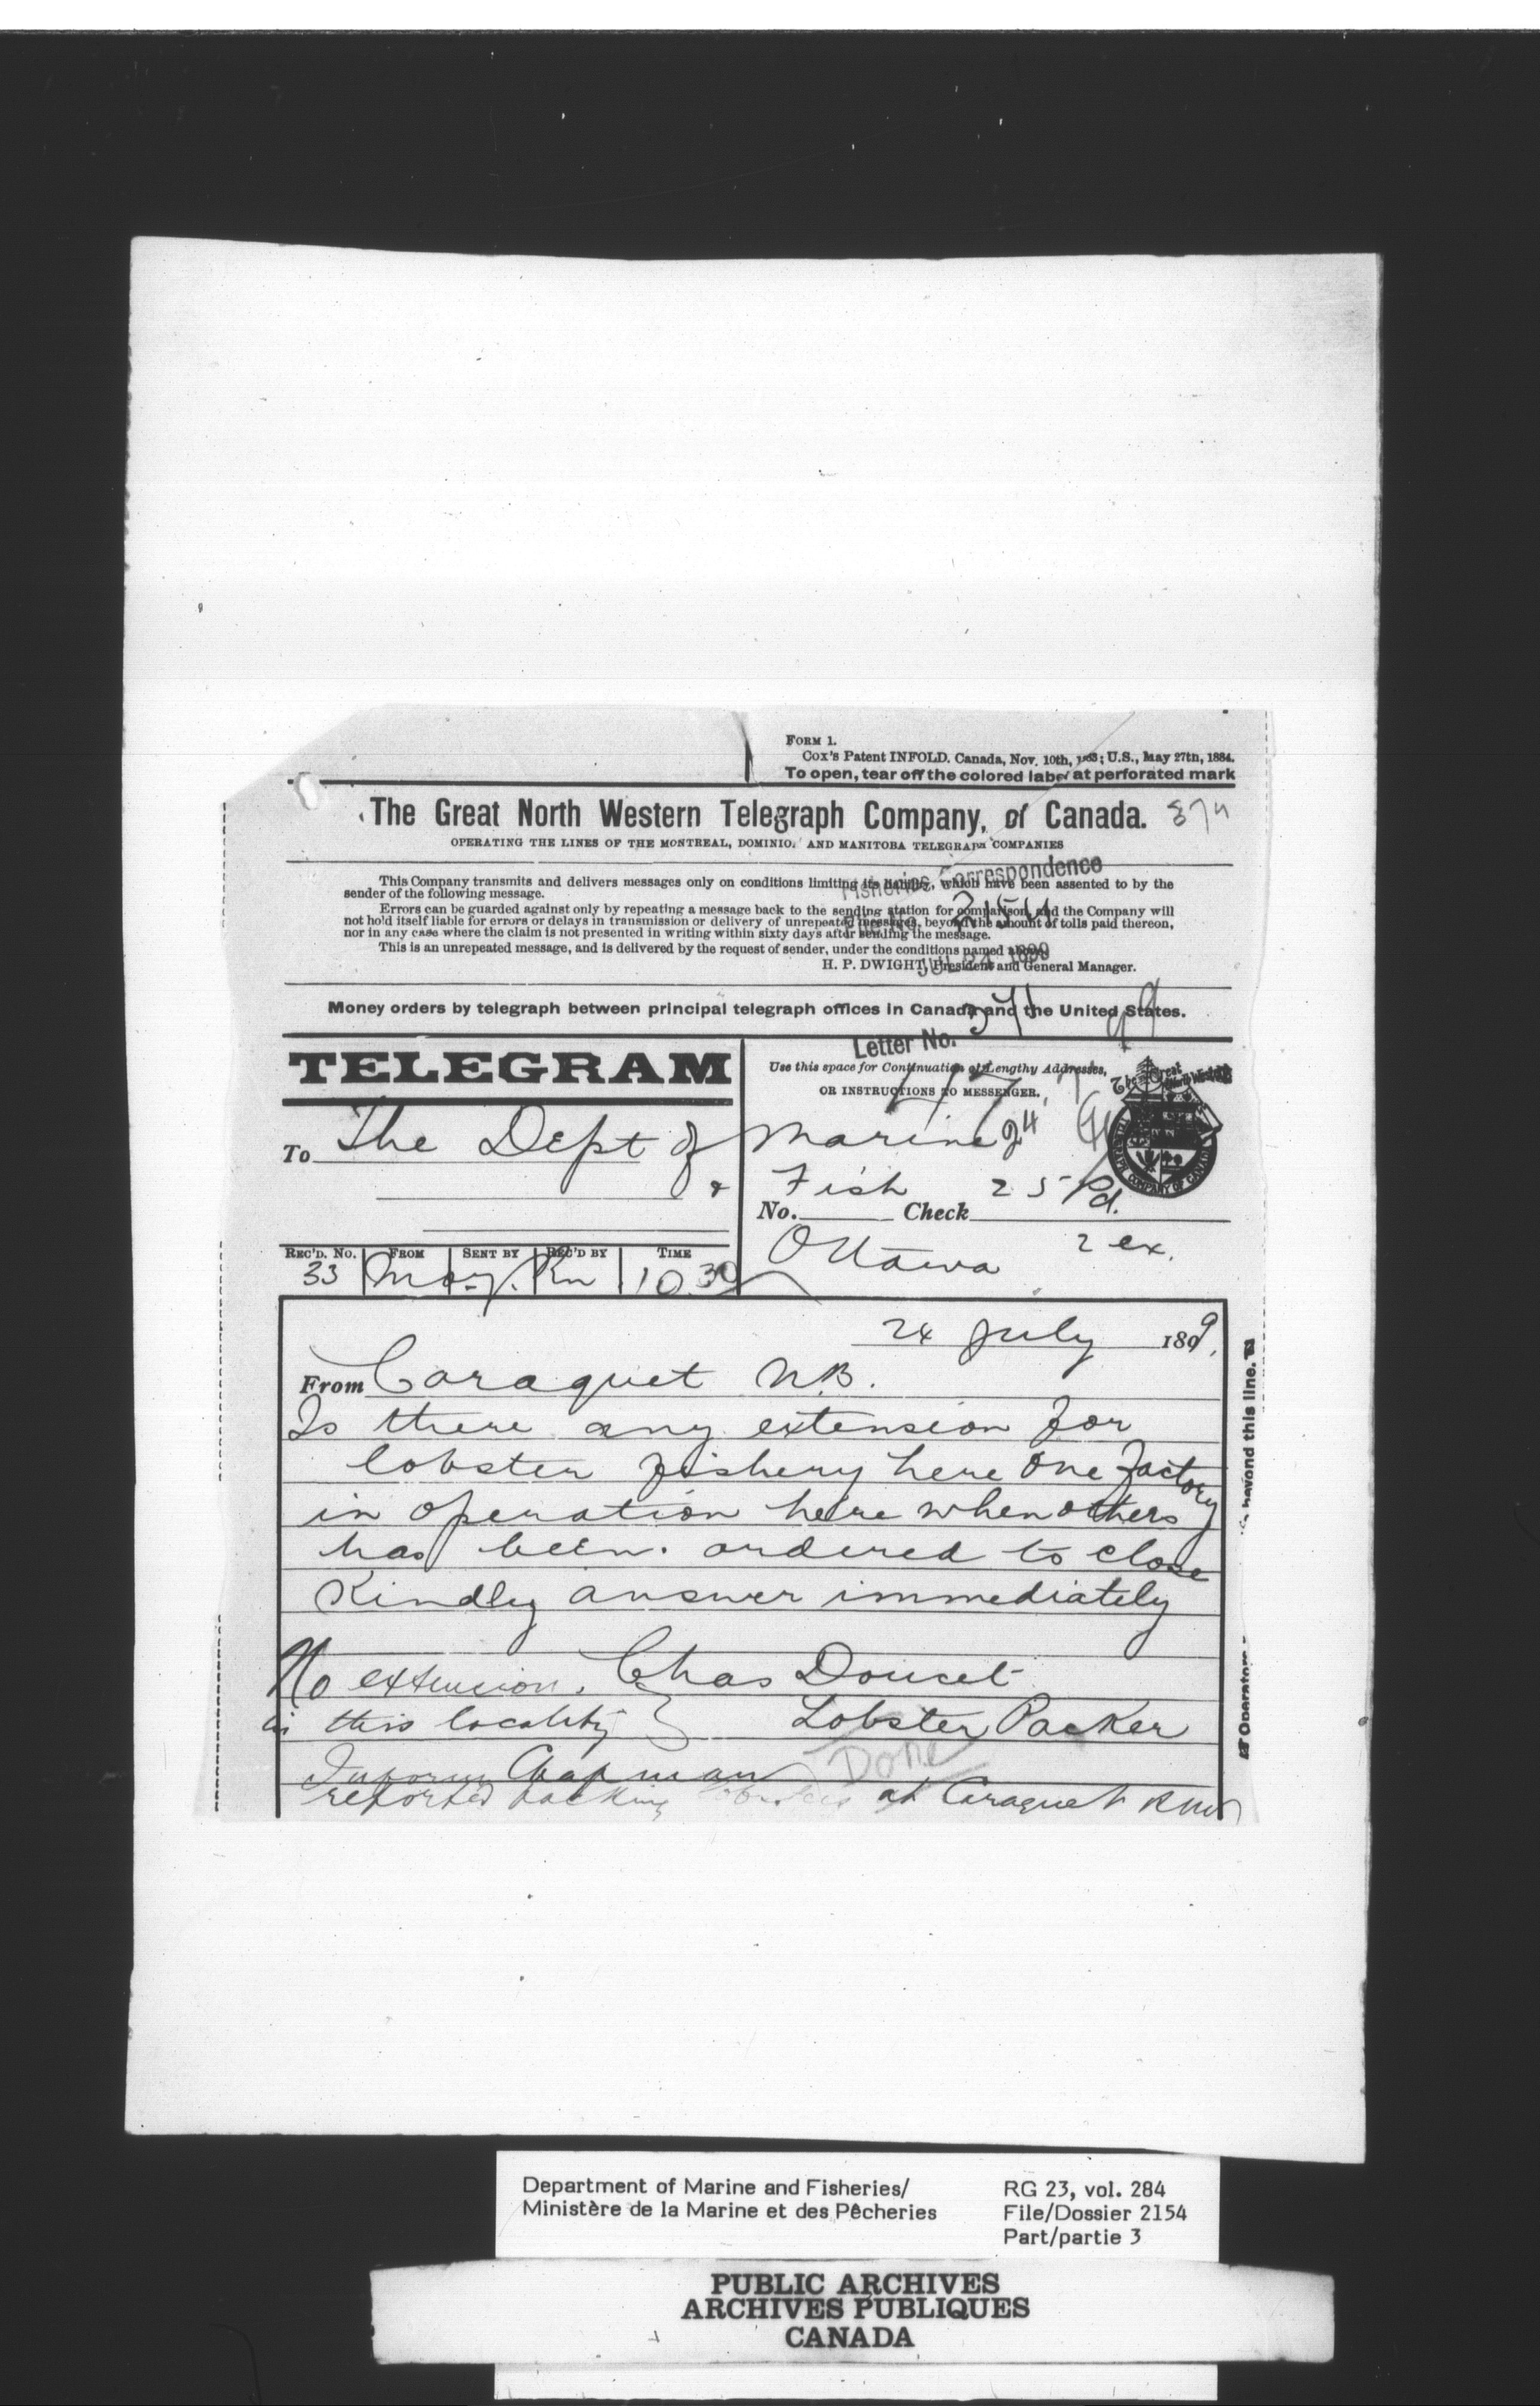 FORM 1.
Cox's Patent INFOLD. Canada, Nov. 10th, 1883; U.S., May 27th, 1884.
To open, tear off the colored label at perforated mark
The Great North Western Telegraph Company, of Canada.
OPERATING THE LINES OF THE MONTREAL, DOMINION AND MANITOBA TELEGRAPH COMPANIES
This Company transmits and delivers messages only on conditions limiting its liability, which have been assented to by the
sender of the following message.
Errors can be guarded against only by repeating a message back to the sending station for comparison, and the Company will
not hold itself liable for errors or delays in transmission or delivery of unrepeated messages, beyond the amount of tolls paid thereon,
nor in any case where the claim is not presented in writing within sixty days after sending the message.
This is an unrepeated message, and is delivered by the request of sender, under the conditions named above.
H. P. DWIGHT, President and General Manager.
Fisheries Correspondence
2154
JUL 24 1899
Money orders by telegraph between principal telegraph offices in Canada and the United States.
Letter No.
TELEGRAM
Use this space for Continuation of Lengthy Addresses,
OR INSTRUCTIONS TO MESSENGER.
To The Dept of Marine 24
& Fish 25 Pd.
No. Check
Ottawa 2 ex.
REC'D. NO. FROM SENT BY REC'D BY TIME
33 10 30
24 July 1899,
From Caraquet N.B.
Is there any extension for
lobster fishery here one factory
in operation here when others
has been. ordered to close
Kindly answer immediately
Chas Doucet
Lobster Packer
No extension.
in this locality
Done
Inform Chapman
reported packing lobsters at Caraquet
beyond this line.
Operators
Department of Marine and Fisheries/
Ministère de la Marine et des Pêcheries
RG 23, vol. 284
File/Dossier 2154
Part/partie 3
PUBLIC ARCHIVES
ARCHIVES PUBLIQUES
CANADA